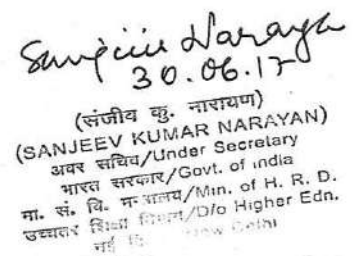 Sanjeev Narayan
30.06.17
(संजीव कु. नारायण)
(SANJEEV KUMAR NARAYAN)
अवर सचिव/Under Secretary
भारत सरकार/Govt. of India
मा. सं. वि. मंत्रालय/Min. of H. R. D.
उच्चतर शिक्षा विभाग/D/o Higher Edn.
नई New Delhi